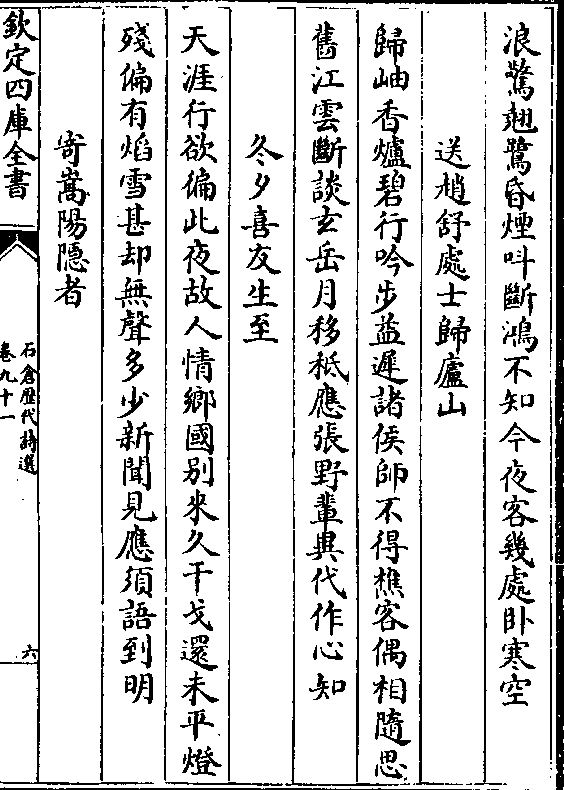 浪驚翹鷺昏煙叫斷鴻不知今夜客幾處卧寒空
送趙舒處士歸廬山
歸岫香爐碧行吟步益遲諸侯師不得樵客偶相隨思
舊江雲斷談玄岳月移秪應張野輩異代作心知
冬夕喜友生至
天涯行欲徧此夜故人情鄉國别來久干戈還未平燈
殘偏有焰雪甚却無聲多少新聞見應須語到明
寄嵩陽隠者
欽定四庫全書
石倉歴代詩選
卷九十一
六